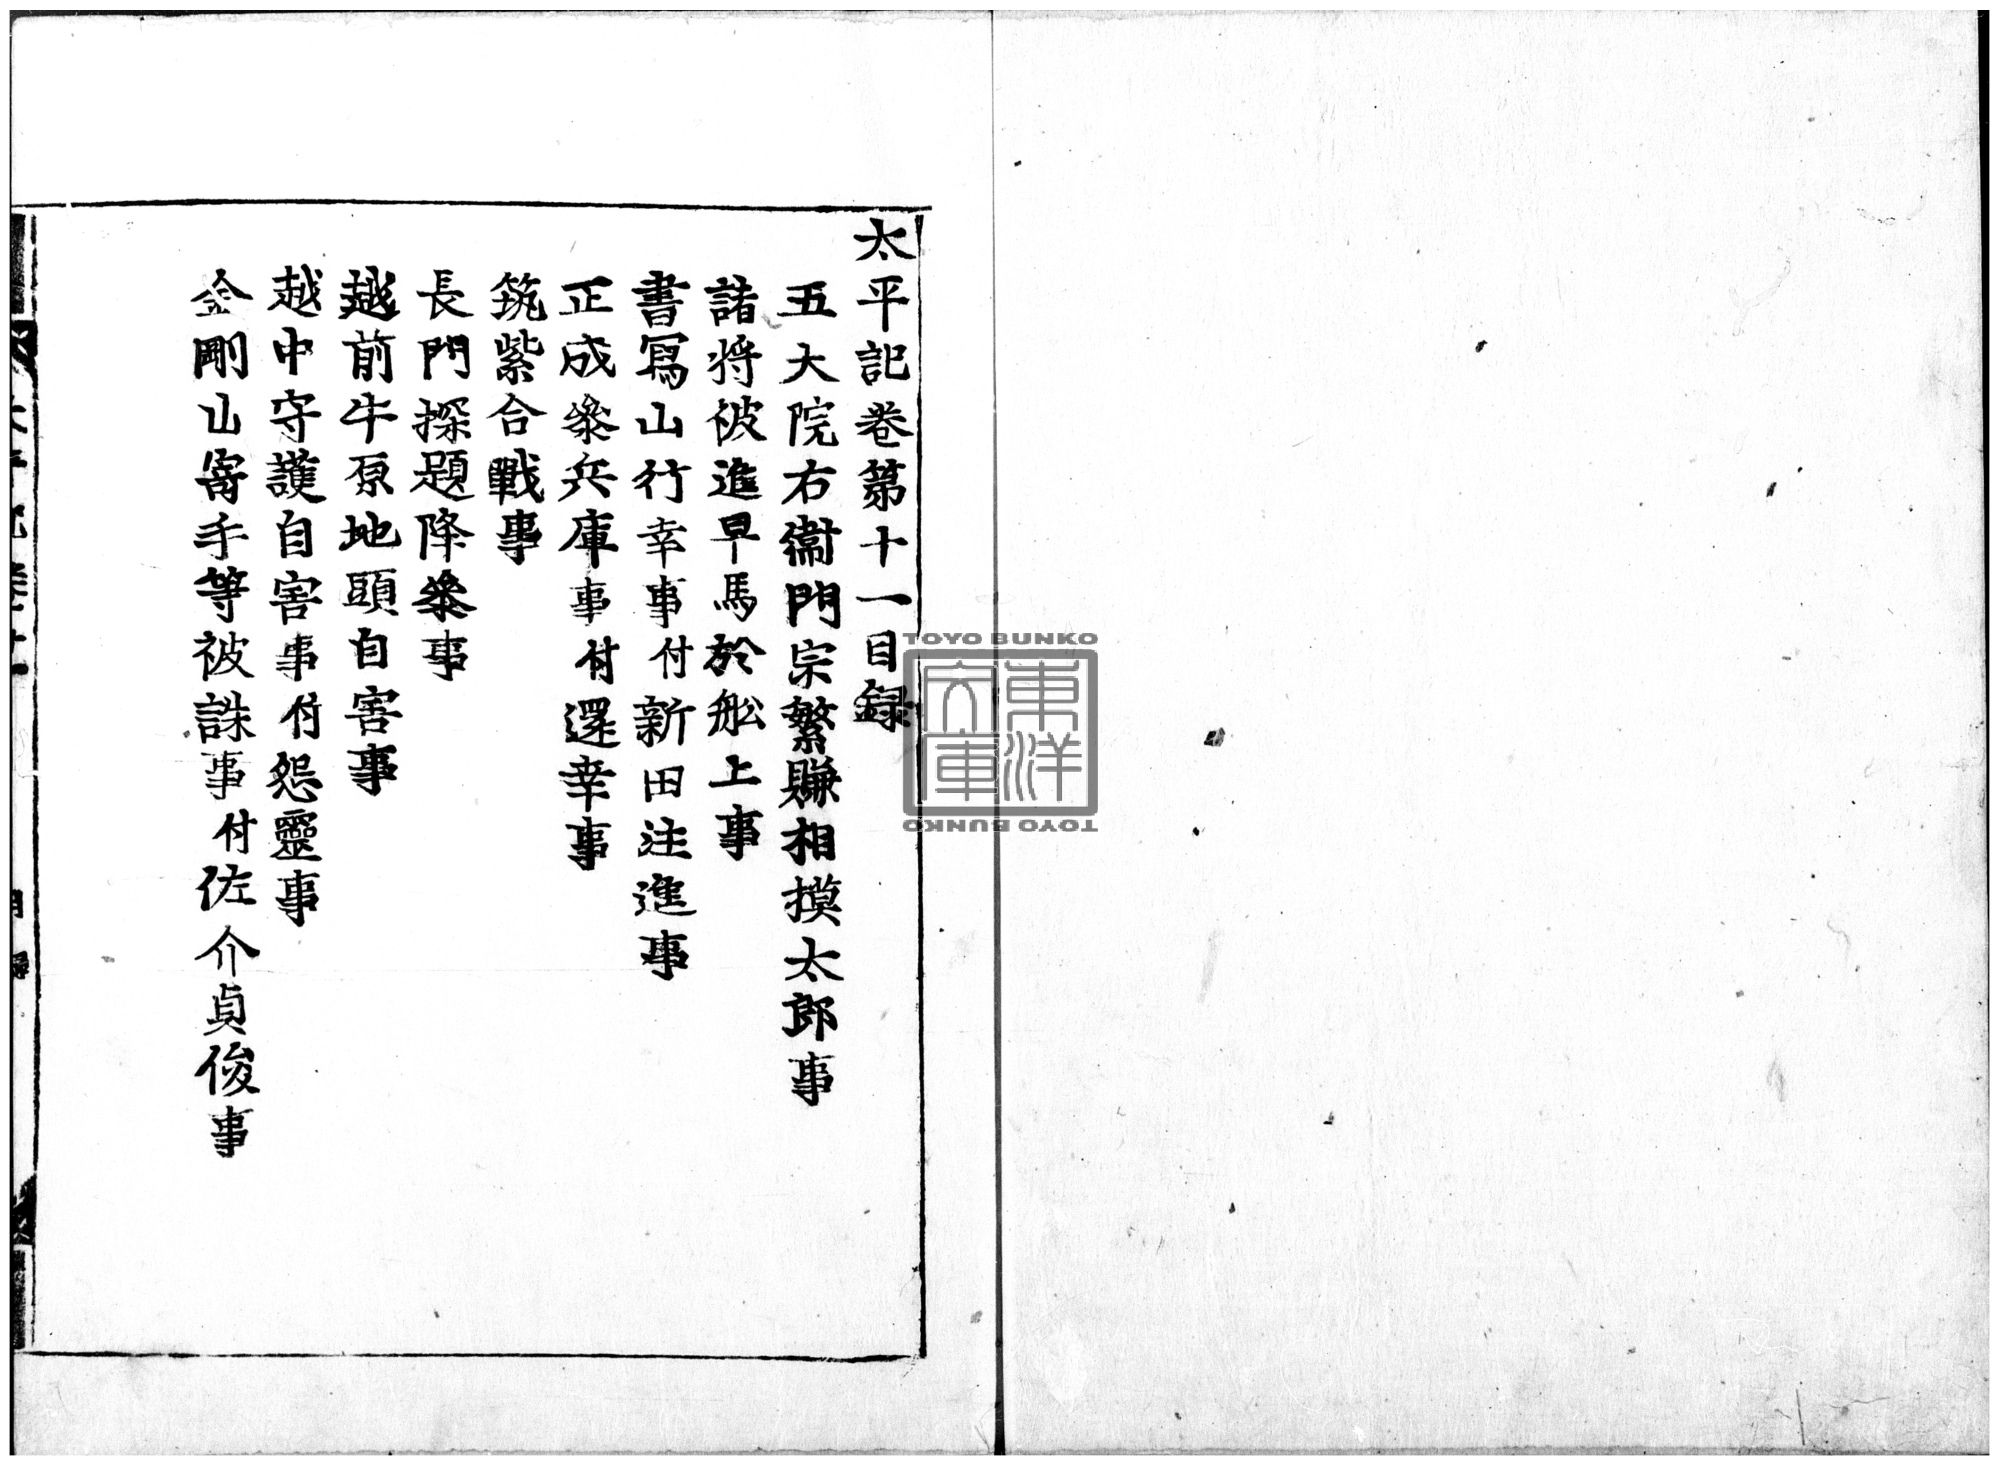 太平記卷第十一目録
五大院右衞門宗繁賺相摸太郎事
諸将被進早馬於舩上事
書冩山行幸事付新田注進事
正成參兵庫事付還幸事
筑紫合戰事
長門探題降參事
越前牛原地頭自害事
越中守護自害事付怨靈事
金剛山寄手等被誅事付佐介貞俊事
TOYO BUNKO
東洋文庫
TOYO BUNKO